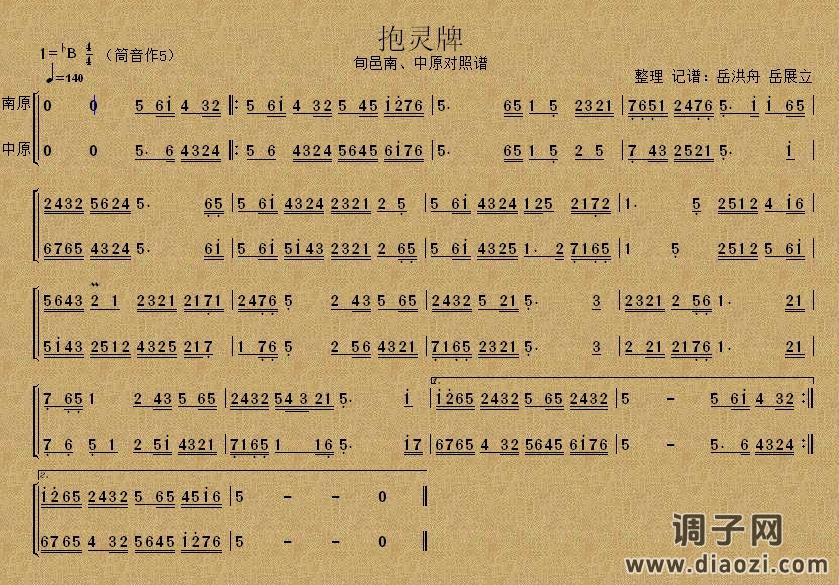 抱灵牌
旬邑南、中原对照谱
1=♭B 4/4 （筒音作5）
♩=140
整理 记谱：岳洪舟 岳展立
南原 0 0 5 6i 4 32 |: 5 6i 4 32 5 45 i276 | 5· 65 1 5 2321 | 7651 2476 5· i i 65
中原 0 0 5· 6 4324 |: 5 6 4324 5645 6i76 | 5· 65 1 5 2 5 | 7 43 2521 5· i
2432 5624 5· 65 | 5 6i 4324 2321 2 5 | 5 6i 4324 125 2172 | 1· 5 2512 4 i6
6765 4324 5· 6i | 5 6i 5i43 2321 2 65 | 5 6i 4325 1· 2 7165 | 1 5 2512 5 6i
5643 2 1 2321 2171 | 2476 5 2 43 5 65 | 2432 5 21 5· 3 | 2321 2 56 1· 21
5i43 2512 4325 217 | 1 76 5 2 56 4321 | 7165 2321 5· 3 | 2 21 2176 1· 21
7 65 1 2 43 5 65 | 2432 54 3 21 5· i | 1. i265 2432 5 65 2432 | 5 - 5 6i 4 32 :|
7 6 5 1 2 5i 4321 | 7165 1 16 5· i7 | 6765 4 32 5645 6i76 | 5 - 5· 6 4324 :|
2. i265 2432 5 65 45i6 | 5 - - 0
6765 4 32 5645 i276 | 5 - - 0
调子网
www.diaozi.com